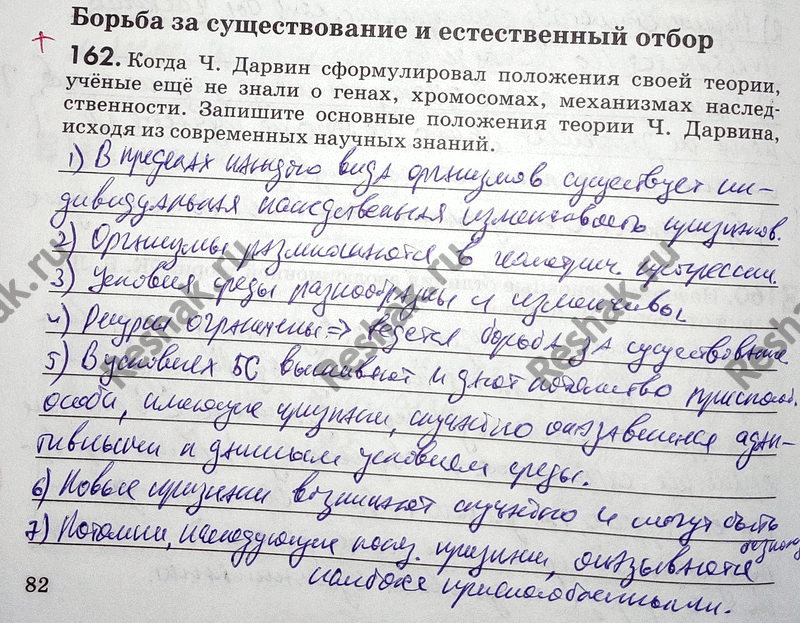 Борьба за существование и естественный отбор
162. Когда Ч. Дарвин сформулировал положения своей теории,
учёные ещё не знали о генах, хромосомах, механизмах наслед-
ственности. Запишите основные положения теории Ч. Дарвина,
исходя из современных научных знаний.
1) В пределах каждого вида организмов существует ин-
дивидуальная наследственная изменчивость признаков.
2) Организмы размножаются в геометрич. прогрессии.
3) Условия среды разнообразны и изменчивы
4) Ресурсы ограничены => ведется борьба за существование
5) В условиях БС выживают и дают потомство приспособ.
особи, имеющие признаки, случайно оказавшиеся адап-
тивными к данным условиям среды.
6) Новые признаки возникают случайно и могут быть
7) Потомки, наследующие полез. признаки, оказываются
наиболее приспособленными.
82
Reshak.ru
Reshak.ru
Reshak.ru